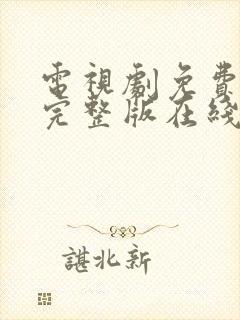 電視劇免費
完整版在綫
諶北新